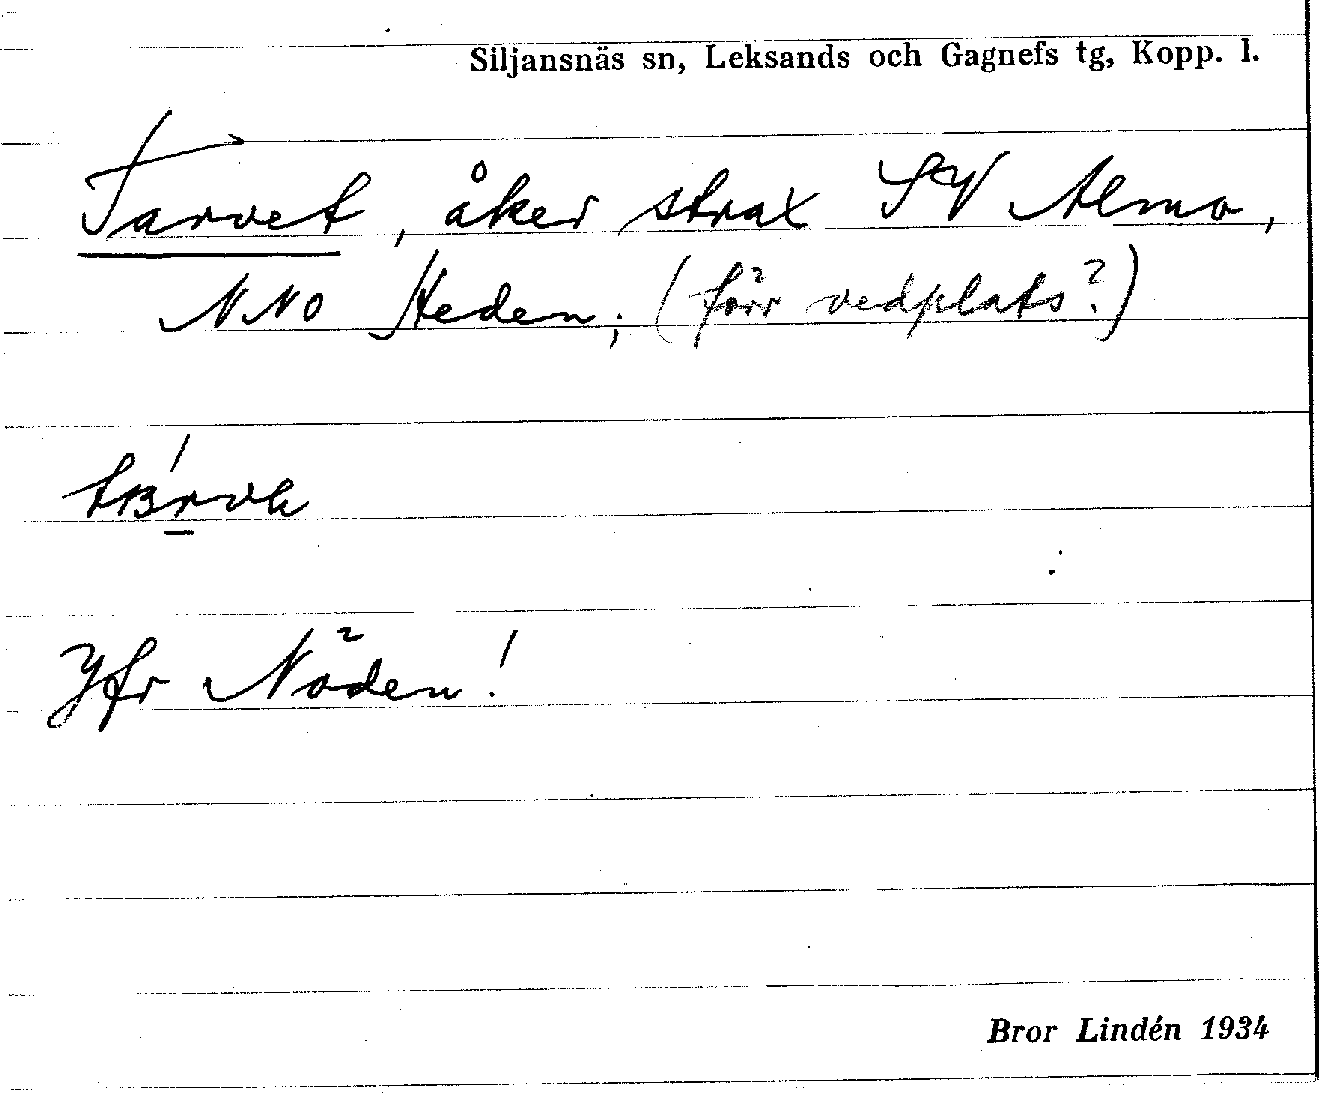 Siljansnäs sn, Leksands och Gagnefs tg, Kopp. l.
Tarvet, åker strax SV Almo,
NNO Heden; (förr vedplats?)
Jfr Nöden!
Bror Lindén 1934